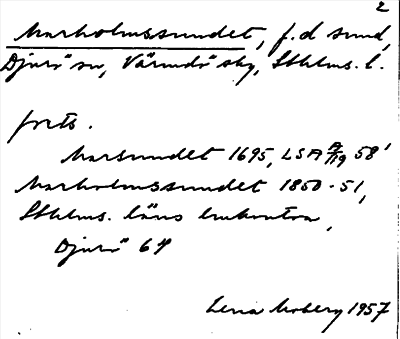 2
Marholmssundet, f.d sund,
Djurö sn, Värmdö skg, Sthlms. l.
forts.
Marsundet 1695, LSA A/19 58¹
Marholmssundet 1850-51,
Sthlms. läns lmkontor,
Djurö 64
Lena Moberg 1957